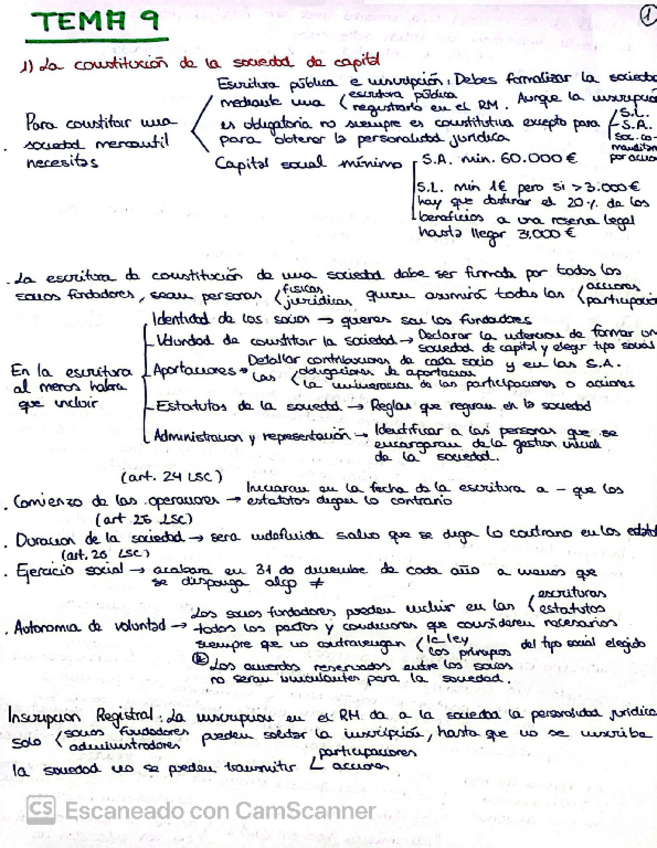 TEMA 9
1
1) La constitución de la sociedad de capital
Escritura pública e inscripción: Debes formalizar la sociedad
mediante una escritura pública
registrarlo en el RM. Aunque la inscripción
Para constituir una
sociedad mercantil
necesitas
es obligatoria no siempre es constitutiva excepto para
S.L.
S.A.
Soc. co-
manditan
por accio
para obtener la personalidad jurídica
Capital social mínimo
S.A. min. 60.000 €
S.L. min 1€ pero si > 3.000€
hay que destinar el 20% de los
beneficios a una reserva legal
hasta llegar 3,000 €
. La escritura de constitución de una sociedad debe ser firmada por todos los
socios fundadores, sean personas físicas
jurídicas quien asumirá todas las acciones
participacio
En la escritura
al menos habra
que incluir
Identidad de los socios → quienes son los fundadores
Voluntad de constituir la sociedad → Declarar la intencion de formar un
sociedad de capital y elegir tipo social
Aportaciones → Detallar contribuciones de cada socio y en las S.A.
Las obligaciones de aportacion
la numeracion de las participaciones o acciones
Estatutos de la sociedad → Reglas que regiran en la sociedad
Administracion y representación → Identificar a las personas que se
encargaran de la gestion inicial
de la sociedad.
(art. 24 LSC)
. Comienzo de las operaciones → Iniciaran en la fecha de la escritura a - que los
estatutos digan lo contrario
(art 25 LSC)
. Duracion de la sociedad → sera indefinida salvo que se diga lo contrario en los estatut
(art. 26 LSC)
. Ejercicio social → acabara en 31 de diciembre de cada año a menos que
se disponga algo ≠
. Autonomia de voluntad → Los socios fundadores pueden incluir en las escrituras
estatutos
todos los pactos y condiciones que consideren necesarios
siempre que no contravengan la ley
los principios del tipo social elegido
Los acuerdos reservados entre los socios
no seran vinculantes para la sociedad.
Inscripcion Registral: La inscripcion en el RM da a la sociedad la personalidad juridica
solo socios fundadores
administradores pueden solicitar la inscripción, hasta que no se inscriba
la sociedad no se pueden transmitir participaciones
acciones
CS Escaneado con CamScanner